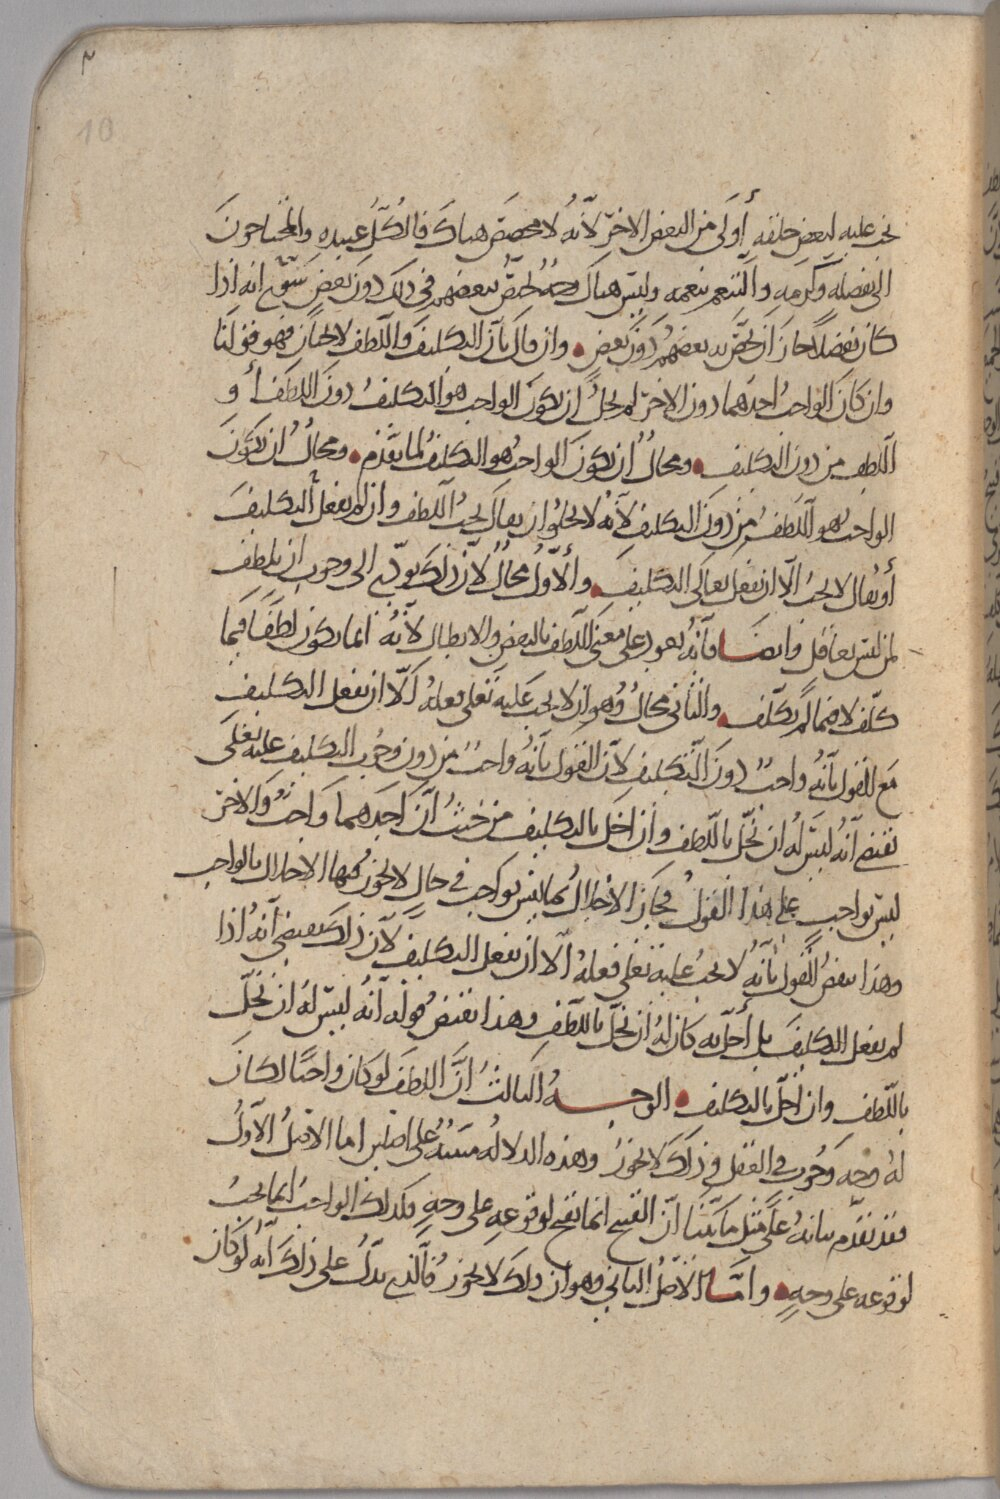 ١٠
10
يجب عليه لبعض خلقه أولى من البعض الاخر لانه لا مخصص هناك فالكل عبيده والمحتاجون
الى تفضله وكرمه والتنعم بنعمه وليس هناك وجه يختص بعضهم في ذلك دون بعض انه اذا
كان تفضلا جاز ان يخص به بعضهم دون بعض وان قال بأن التكليف واللطف لا يجبان فهو قولنا
وان كان الواجب احدهما دون الاخر لم يخل ان يكون الواجب هو التكليف دون اللطف أو
اللطف من دون التكليف ومحال ان يكون الواجب هو التكليف لما تقدم ومحال ان يكون
الواجب هو اللطف من دون التكليف لأنه لا يخلو ان يقال يجب اللطف وان لم يفعل التكليف
أو يقال لا يجب الا ان يفعل تعالى التكليف والأول محال لأن ذلك يؤدي الى وجوب ان يلطف
لمن ليس بعاقل وايضا فانه يعود على معنى اللطف بالنقض والابطال لأنه انما يكون لطفا فيما
كلف لا فيما لم يكلف والثاني محال وهو ان لا يجب عليه تعلى فعله الا ان يفعل التكليف
مع القول بأنه واجب دون التكليف لأن القول بأنه واجب من دون وجوب التكليف عليه تعلى
يقتضي أنه ليس له ان يخل باللطف وان اخل بالتكليف من حيث أن احدهما واجب والاخر
ليس بواجب على هذا القول فجاز الاخلال بما ليس بواجب في حال لا يجوز فيها الاخلال بالواجب
وهذا ينقض القول بأنه لا يجب عليه تعلى فعله الا ان يفعل التكليف لأن ذلك يقتضي أنه اذا
لم يفعل التكليف بل أخل به كان له ان يخل باللطف وهذا ينقض قوله أنه ليس له ان يخل
باللطف وان اخل بالتكليف الوجه الثالث ان اللطف لو كان واجبا لكان
له وجه وجوب في العقل وذلك لا يجوز وهذه الدلالة مبنية على اصلين اما الاصل الأول
فقد تقدم بيانه على مثل ما بينا ان القبيح انما يقبح لوقوعه على وجه فكذلك الواجب انما يجب
لوقوعه على وجه وأما الاصل الثاني وهو ان ذلك لا يجوز فالذي يدل على ذلك أنه لو كان